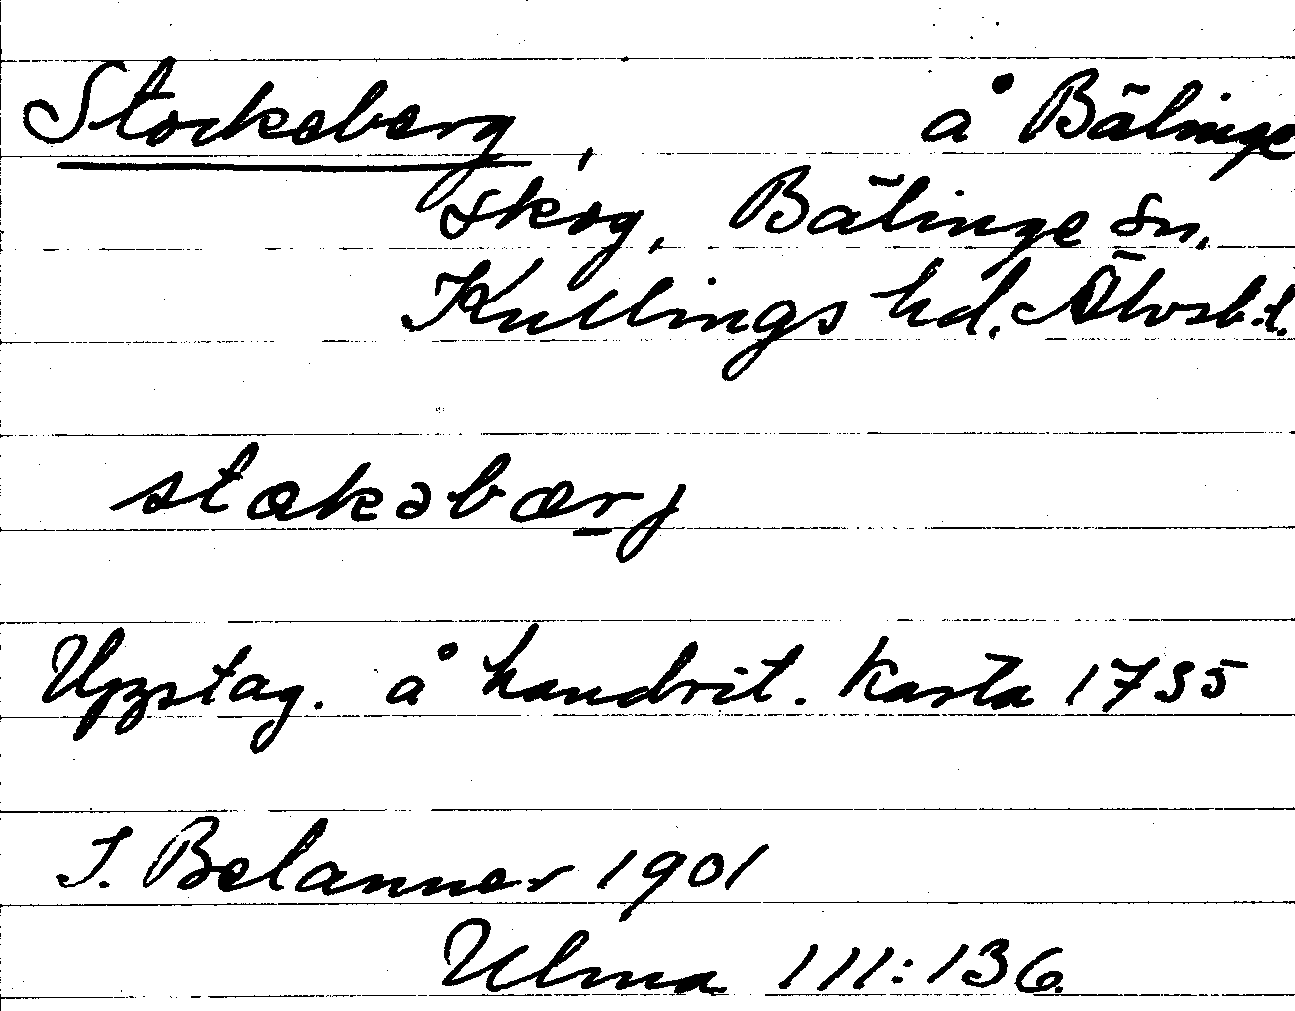 Stockeberg, å Bälinge
Skog, Bälinge sn,
Kullings hd. Älvsb.l.
stakəbærj
Uppstag. å handrit. karta 1735
I. Belanner 1901
Ulma 111:136.